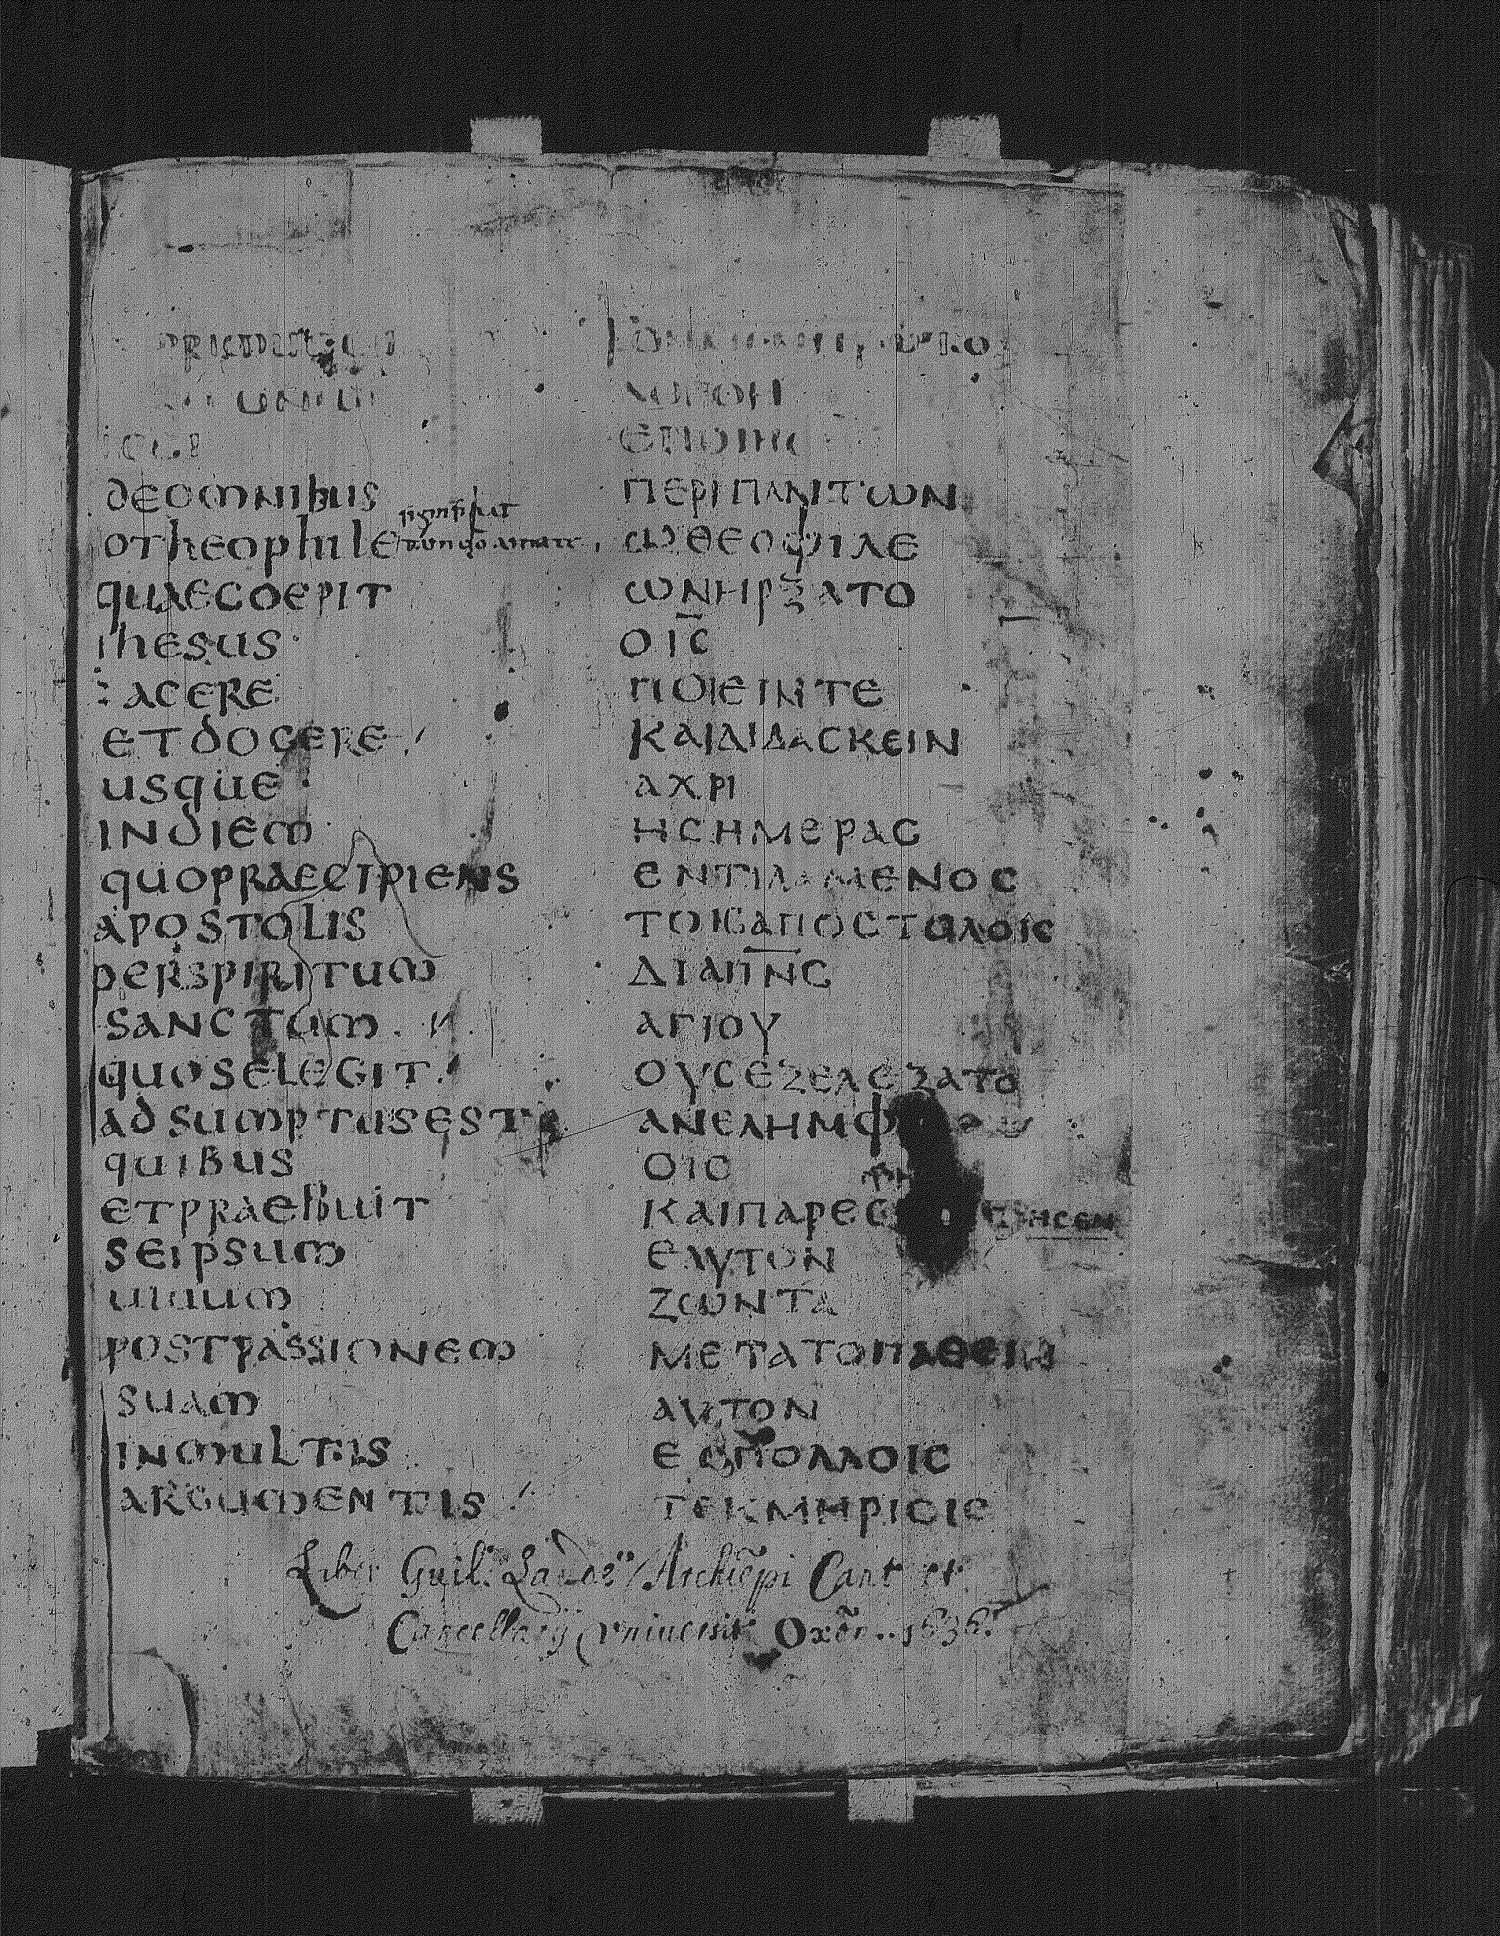 deomnibus
otheophile
quaecoepit
ihesus
acere
etdocere
usque
indiem
quopraecipiens
apostolis
perspiritum
sanctum
quoselegit
adsumptusest
quibus
etpraebuit
seipsum
uiuum
postpassionem
suam
inmultis
argumentis
ΠΕΡΙΠΑΝΤΩΝ
ΩΘΕΟΦΙΛΕ
ΩΝΗΡΞΑΤΟ
ΟΙ̅Ϲ̅
ΠΟΙΕΙΝΤΕ
ΚΑΙΔΙΔΑϹΚΕΙΝ
ΑΧΡΙ
ΗϹΗΜΕΡΑϹ
ΕΝΤΙΛΑΜΕΝΟϹ
ΤΟΙϹΑΠΟϹΤΟΛΟΙϹ
ΔΙΑΠ̅Ν̅Ϲ̅
ΑΓΙΟΥ
ΟΥϹΕΞΕΛΕΞΑΤΟ
ΑΝΕΛΗΜΦ
ΟΙϹ
ΚΑΙΠΑΡΕϹ ΗϹΕΝ
ΕΑΥΤΟΝ
ΖΩΝΤΑ
ΜΕΤΑΤΟΠΑΘΕΙΝ
ΑΥΤΟΝ
ΕΝΠΟΛΛΟΙϹ
ΤΕΚΜΗΡΙΟΙϹ
Liber Guil: Laud Archiēpi Cant et
Cancellarij Vniuersit Oxōn.. 1636.